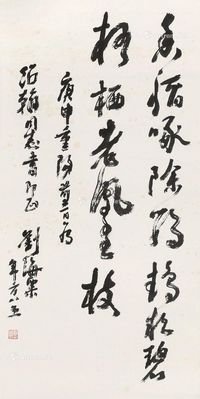 香稻啄餘鸚鵡粒碧
梧栖老鳳皇枝
庚申重陽前一日為
張翰同志書即正
劉海粟
年方八五